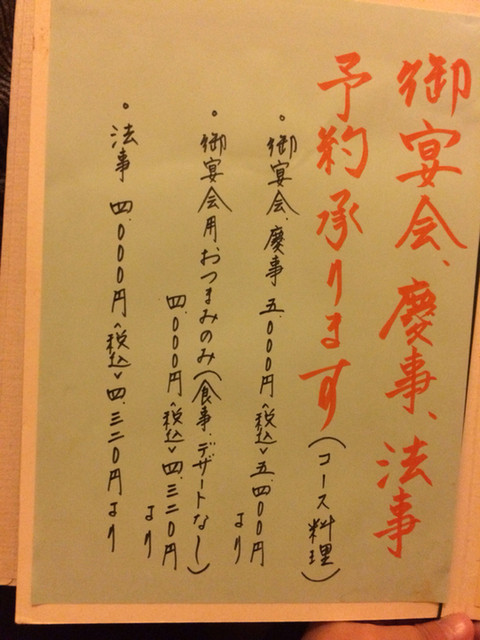 御宴会、慶事、法事
予約承ります(コース料理)
。御宴会、慶事 五、000円〈税込〉五、四00円
より
。御宴会用おつまみのみ(食事、デザートなし)
四、000円〈税込〉四、三二0円
より
。法事 四、000円〈税込〉四、三二0円より